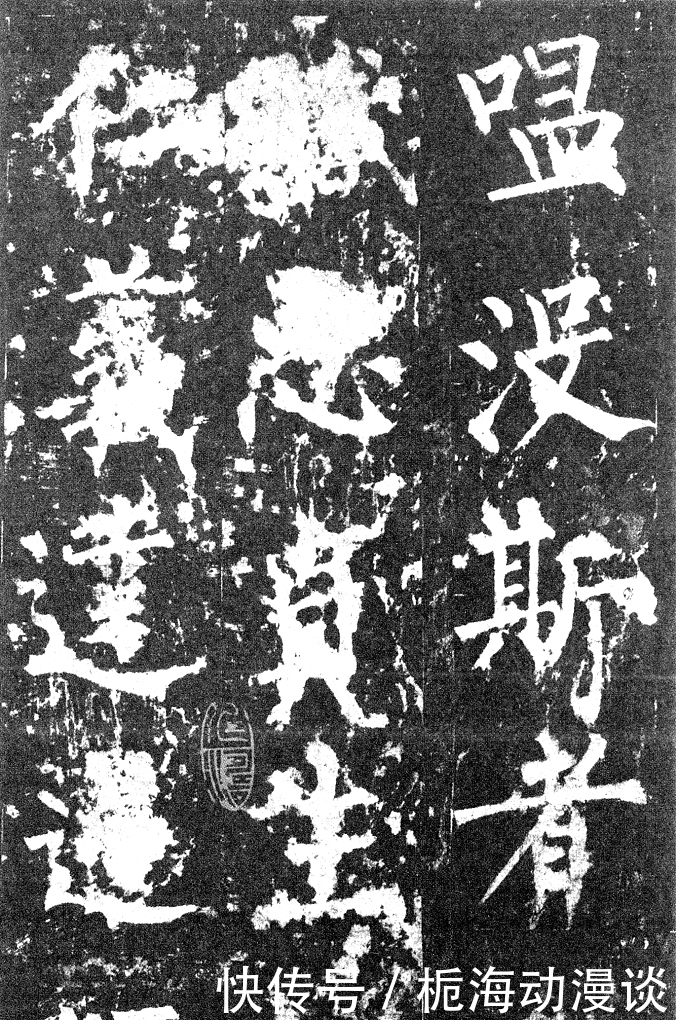 嗢没斯者
忠貞生
仁義達
快传号 / 栀海动漫谈